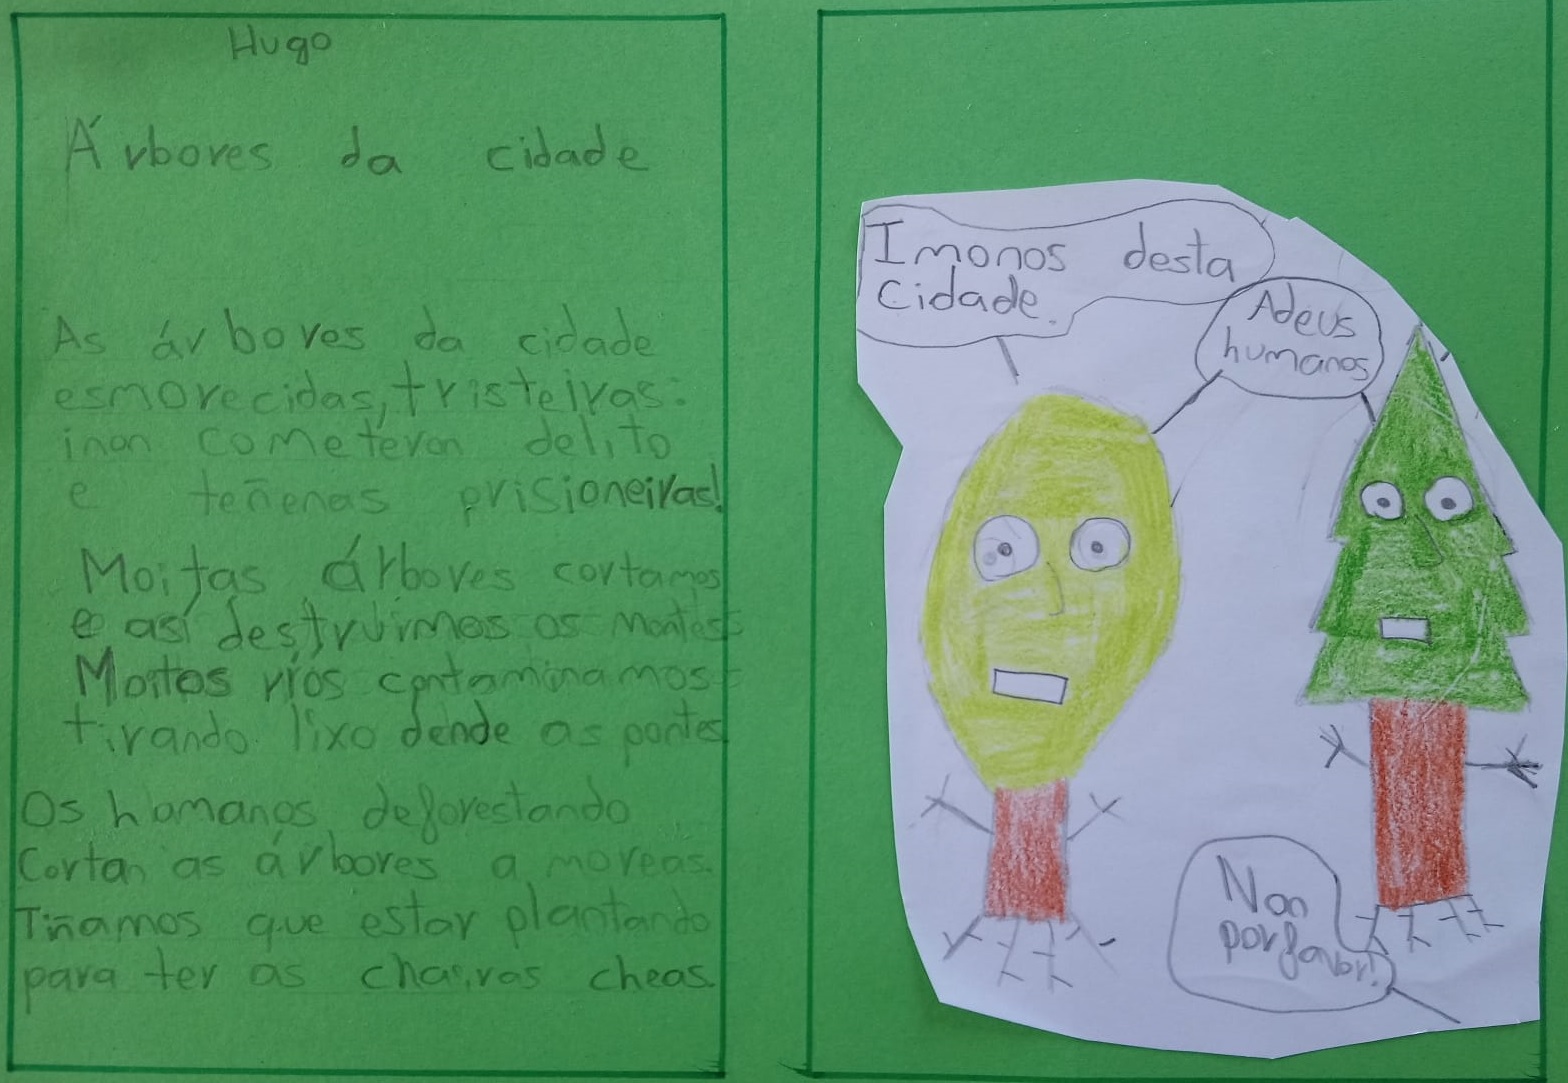 Hugo
Árbores da cidade
As árbores da cidade
esmorecidas, tristeiras:
inon cometeron delito
e téñenas prisioneiras!
Moitas árbores cortamos
e así destruímos os montes
Moitos ríos contaminamos
tirando lixo dende as pontes
Os humanos deforestando
Cortan as árbores a moreas.
Tiñamos que estar plantando
para ter as chairas cheas.
Imonos desta
Cidade.
Adeus
humanos
Non
porfabor!